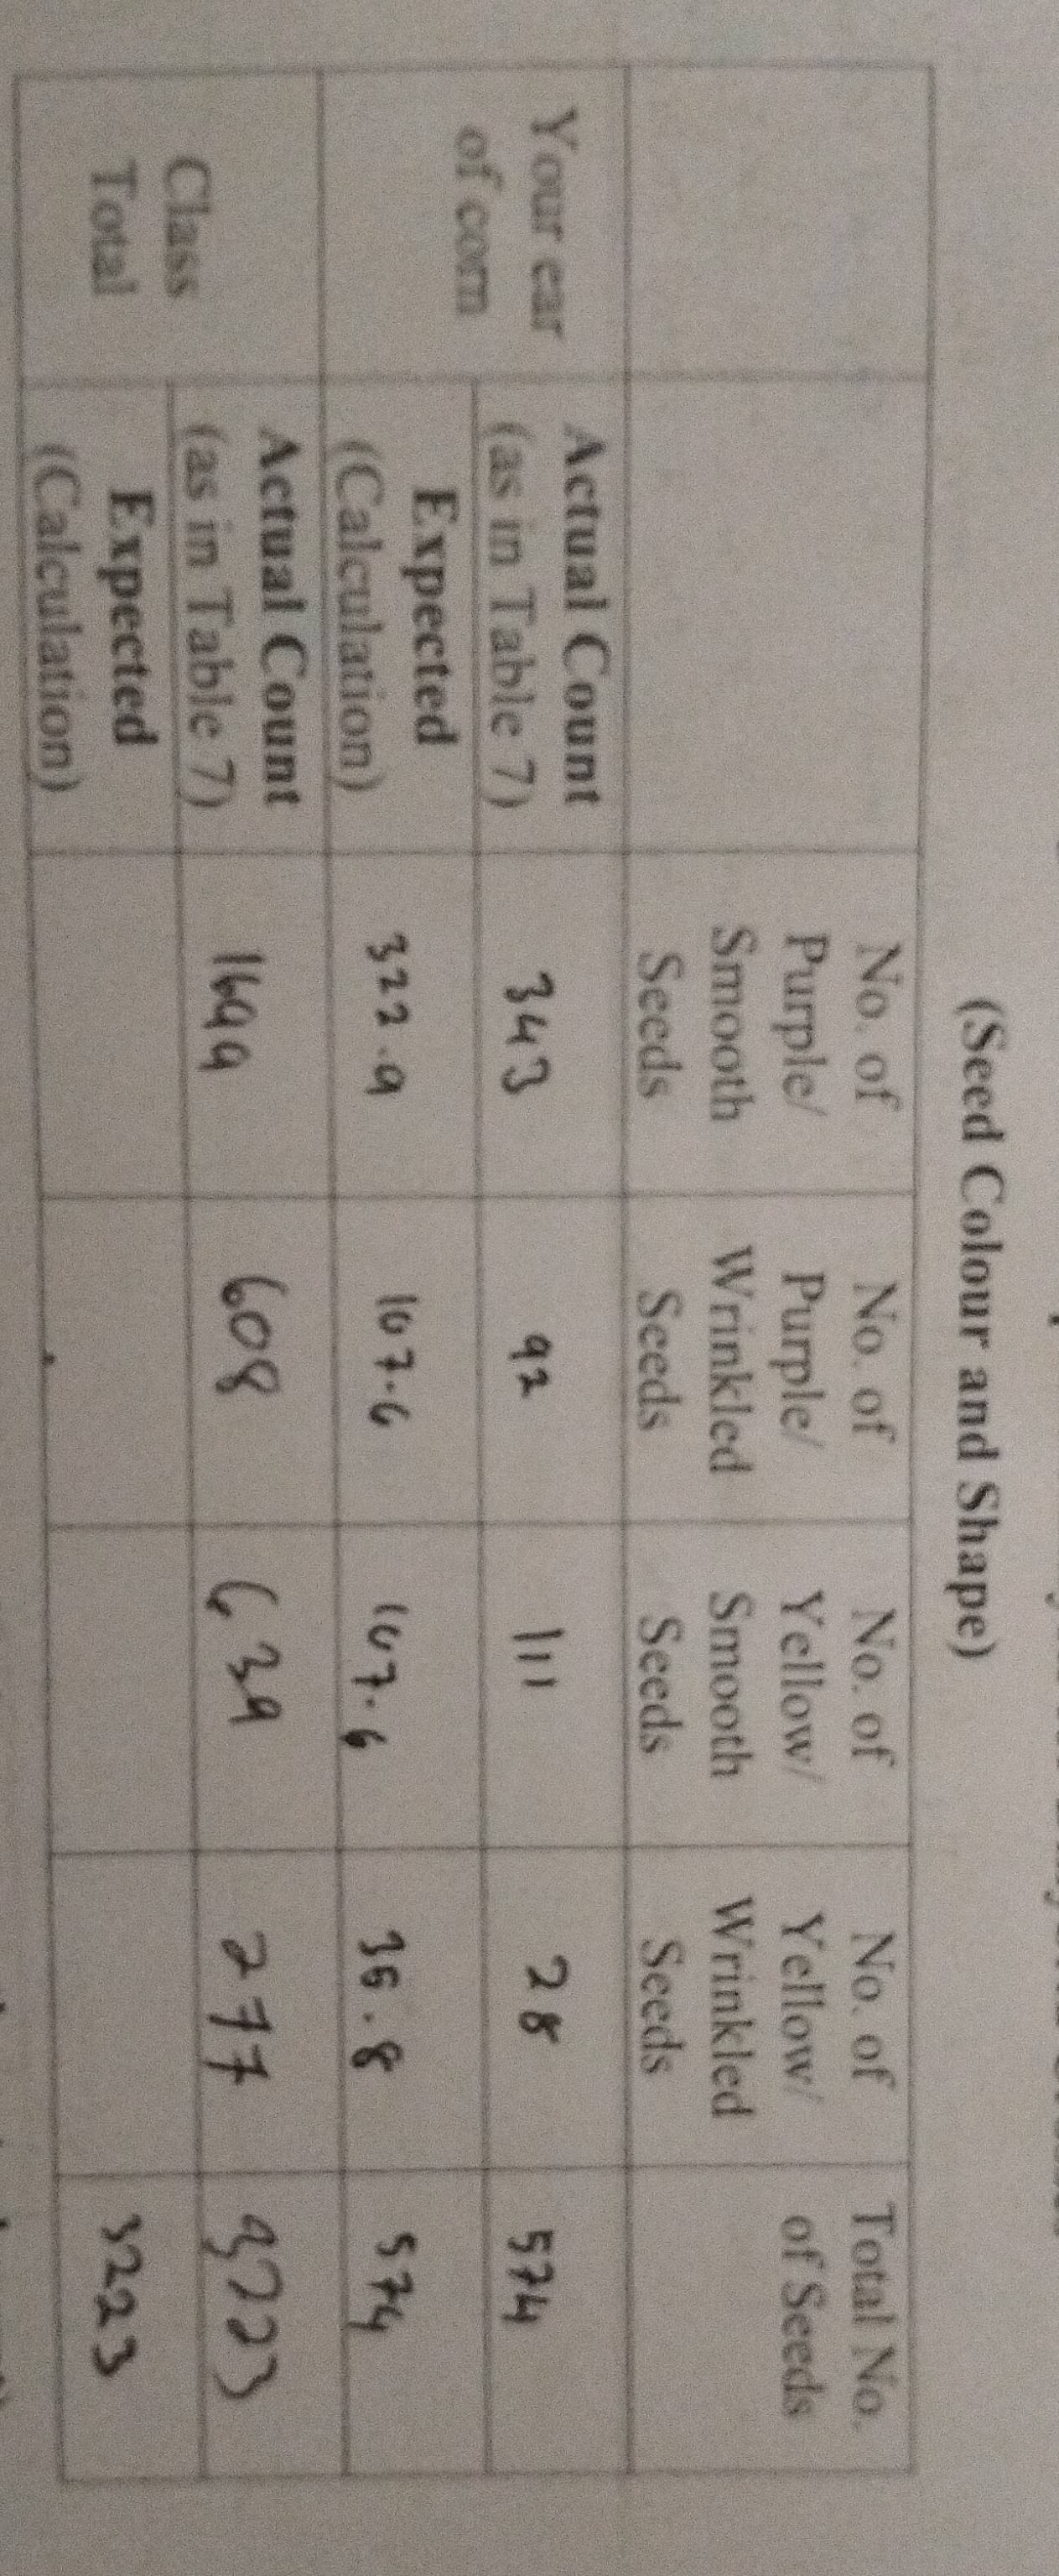 (Seed Colour and Shape)
No. of Purple/ Smooth Seeds
No. of Purple/ Wrinkled Seeds
No. of Yellow/ Smooth Seeds
No. of Yellow/ Wrinkled Seeds
Total No. of Seeds
Your ear of corn
Actual Count (as in Table 7) 343 92 111 28 574
Expected (Calculation) 322.9 107.6 107.6 35.8 574
Class Total
Actual Count (as in Table 7) 1699 608 639 277 3223
Expected (Calculation) 3223